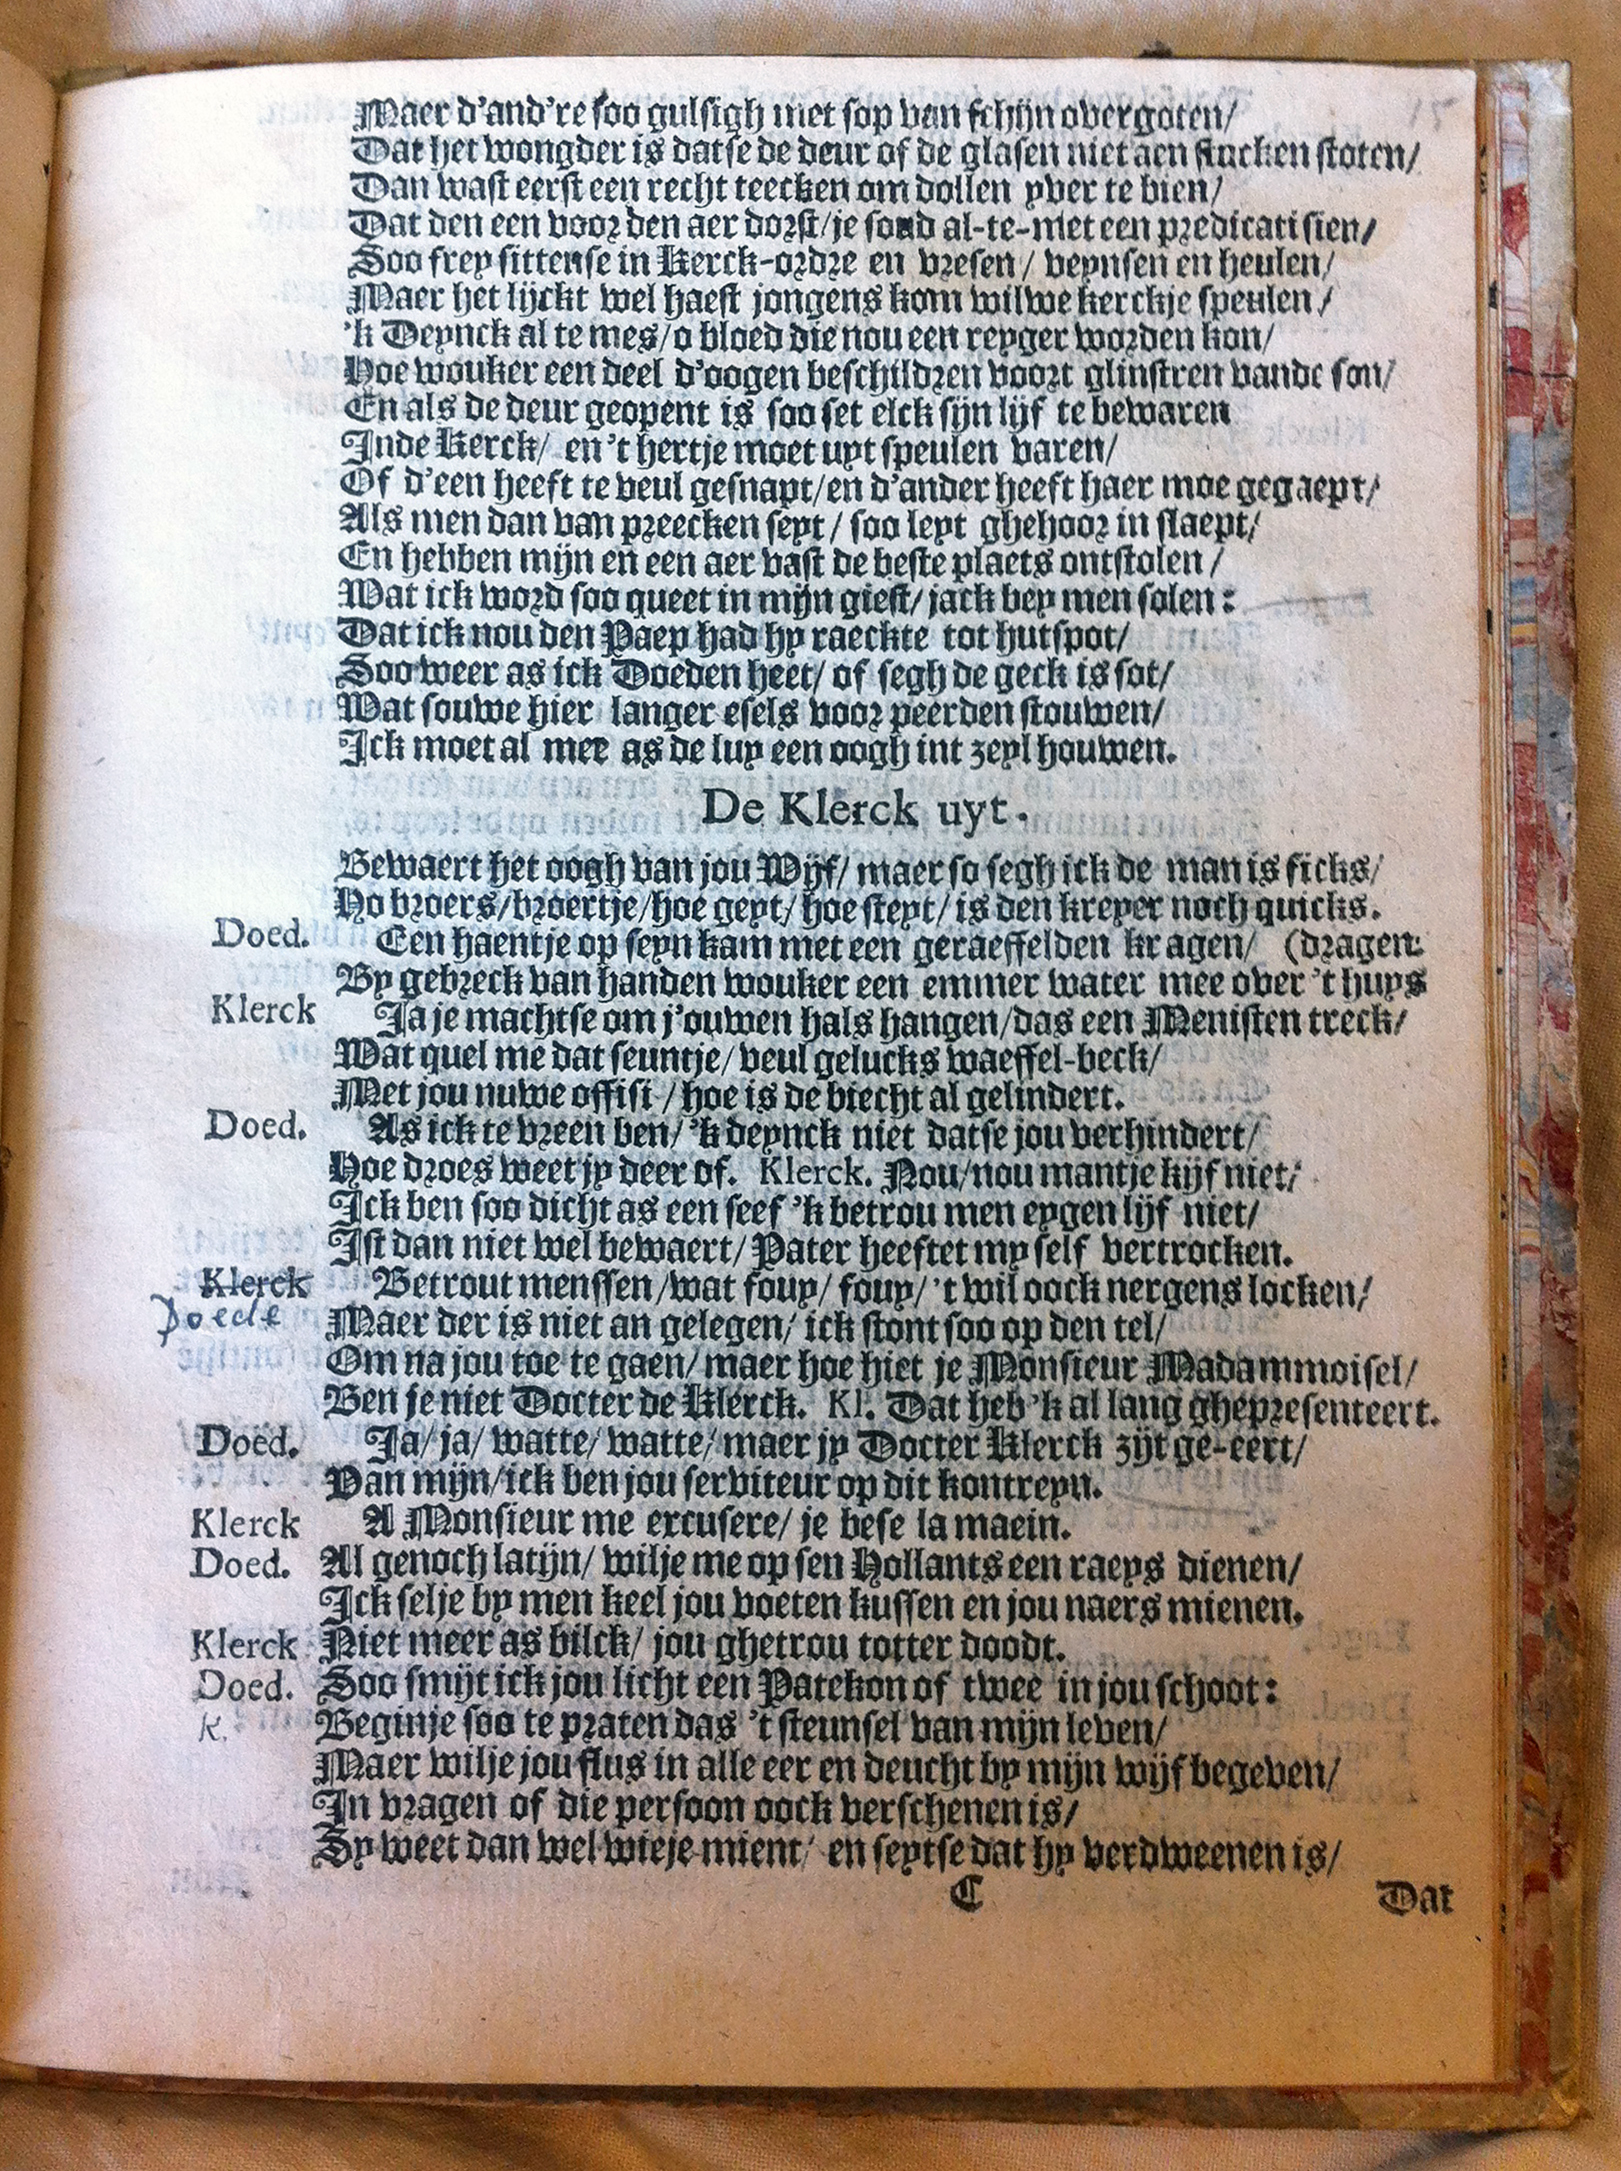 Maer d'and're soo gulsigh met sop van schijn overgoten/
Dat het wongder is datse de deur of de glasen niet aen stucken stoten/
Dan wast eerst een recht teecken om dollen yver te bien/
Dat den een voor den aer dorst/je soud al-te-met een predicati sien/
Soo frey sittense in Kerck-ordre en vresen/ veynsen en heulen/
Maer het lijckt wel haest jongens kom wilwe kerckje speulen/
'k Deynck al te mes/o bloed die nou een reyger worden kon/
Hoe wouker een deel d'oogen beschildren voort glinstren vande son/
En als de deur geopent is soo set elck sijn lijf te bewaren
Inde Kerck/ en 't hertje moet uyt speulen varen/
Of d'een heeft te veul gesnapt/en d'ander heeft haer moe gegaept/
Als men dan van preecken seyt/ soo leyt ghehoor in slaept/
En hebben mijn en een aer vast de beste plaets ontstolen/
Wat ick word soo queet in mijn giest/jack bey men solen:
Dat ick nou den Paep had hy raeckte tot hutspot/
Soo weer as ick Doeden heet/ of segh de geck is sot/
Wat souwe hier langer esels voor peerden stouwen/
Ick moet al mee as de luy een oogh int zeyl houwen.
De Klerck uyt.
Bewaert het oogh van jou Wijf/ maer so segh ick de man is ficks/
Ho broers/broertje/hoe geyt/hoe steyt/is den kreyer noch quicks.
Doed. Een haentje op seyn kam met een geraeffelden kragen/ (dragen:
By gebreck van handen wouker een emmer water mee over 't huys
Klerck Ja je machtse om j'ouwen hals hangen/das een Menisten treck/
Wat quel me dat seuntje/veul gelucks waeffel-beck/
Met jou nuwe offisi-/hoe is de biecht al gelindert.
Doed. As ick te vreen ben/'k deynck niet datse jou verhindert/
Hoe droes weet jy deer of. Klerck. Nou/nou mantje kijf niet/
Ick ben soo dicht as een seef 'k betrou men eygen lijf niet/
Ist dan niet wel bewaert/Pater heeftet my self vertrocken.
Klerck Betrout menssen/wat fouy/fouy/'t wil oock nergens locken/
Doede Maer der is niet an gelegen/ ick stont soo op den tel/
Om na jou toe te gaen/maer hoe hiet je Monsieur Madammoisel/
Ben je niet Docter de Klerck. Kl. Dat heb 'k al lang ghepresenteert.
Doed. Ja/ja/watte/watte/maer jy Docter Klerck zijt ge-eert/
Van mijn/ick ben jou serviteur op dit kontreyn.
Klerck A Monsieur me excusere/je bese la maein.
Doed. Al genoch latijn/wilje me op sen Hollants een raeys dienen/
Ick selje by men keel jou voeten kussen en jou naers mienen.
Klerck Niet meer as bilck/jou ghetrou totter doodt.
Doed. Soo smijt ick jou licht een Patekon of twee in jou schoot:
K. Beginje soo te praten das 't steunsel van mijn leven/
Maer wilje jou flus in alle eer en deucht by mijn wijf begeven/
In vragen of die persoon oock verschenen is/
Sy weet dan wel wieje mient/ en seytse dat hy verdweenen is/
C Dat